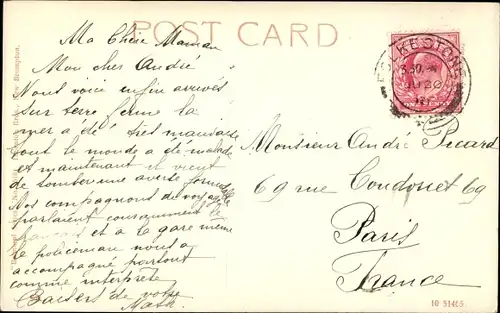 POST CARD
Ma Chère Maman
Mon cher André
Nous voici enfin arrivés
sur terre ferme la
mer a été très mauvaise
tout le monde a été malade
et maintenant il vient
de tomber une averse formidable
Nos compagnons de voyage
parlaient couramment le
français et à la gare même
le policeman nous a
accompagné partout
comme interprète
Baisers de votre
FOLKESTONE
Monsieur André Secard
69 rue Condorcet 69
Paris
France
10 31465.